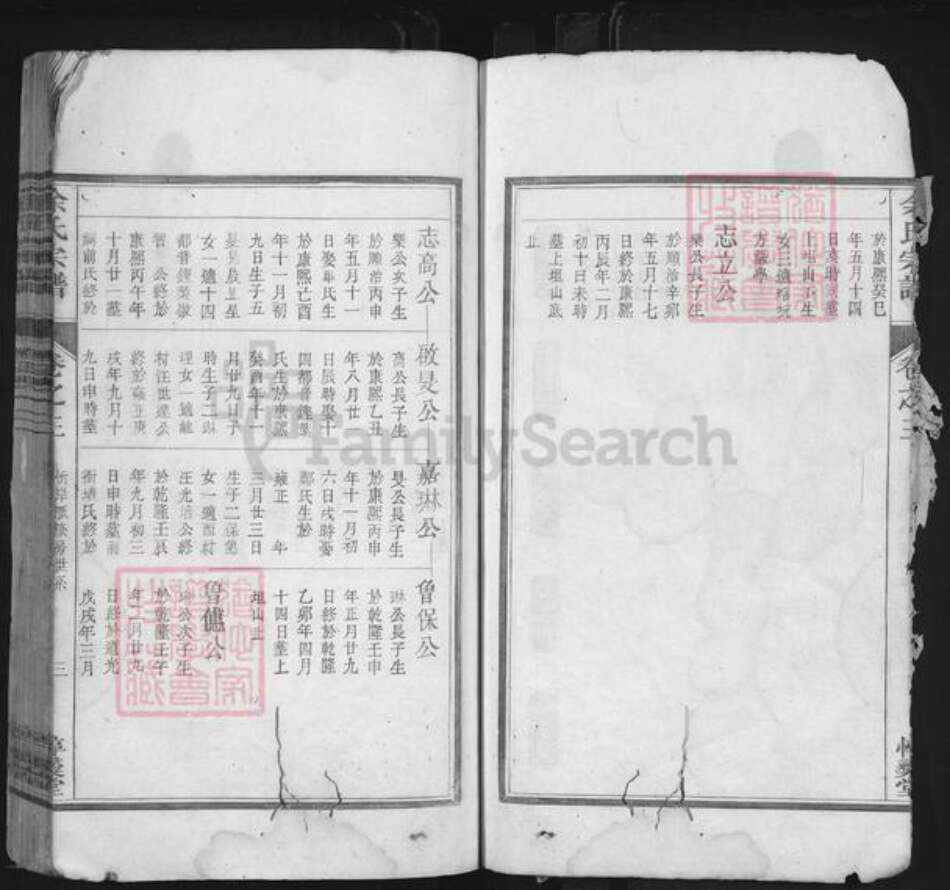 於康熙癸巳
年五月十四
上坦山下生
女三適
方
志立公
樂公長子生
於順治辛卯
年五月十七
日終於康熙
丙辰年二月
初十日未時
墓上坦山底
止
余氏宗譜
卷之三
惇義堂
志高公
樂公次子生
於順治丙申
年五月十一
日娶畢氏生
於康熙己酉
年十一月初
九日生子五
女一適十四
都
公終於
康熙丙午年
十月廿二墓
前氏終於
啟旻公
高公長子生
於康熙乙丑
年八月廿
日辰時娶十
四都
氏生於康熙
癸酉年十一
月廿九日子
時生子二琳
理女一適
村汪世達公
終於雍正庚
戌年九月十
九日申時墓
嘉琳公
旻公長子生
於康熙丙申
年十一月初
六日戌時娶
鄭氏生於
雍正 年
三月廿三日
生子二保
女一適
汪光 公終
於乾隆壬辰
年九月初三
日申時墓
氏終於
魯保公
琳公長子生
於乾隆壬申
年正月廿九
日終於乾隆
乙卯年四月
十四日墓上
坦山止
魯儶公
琳公次子生
於乾隆壬午
年二月廿九
日終於道光
戊戌年三月
余氏宗譜
卷之三
三
惇義堂
FamilySearch